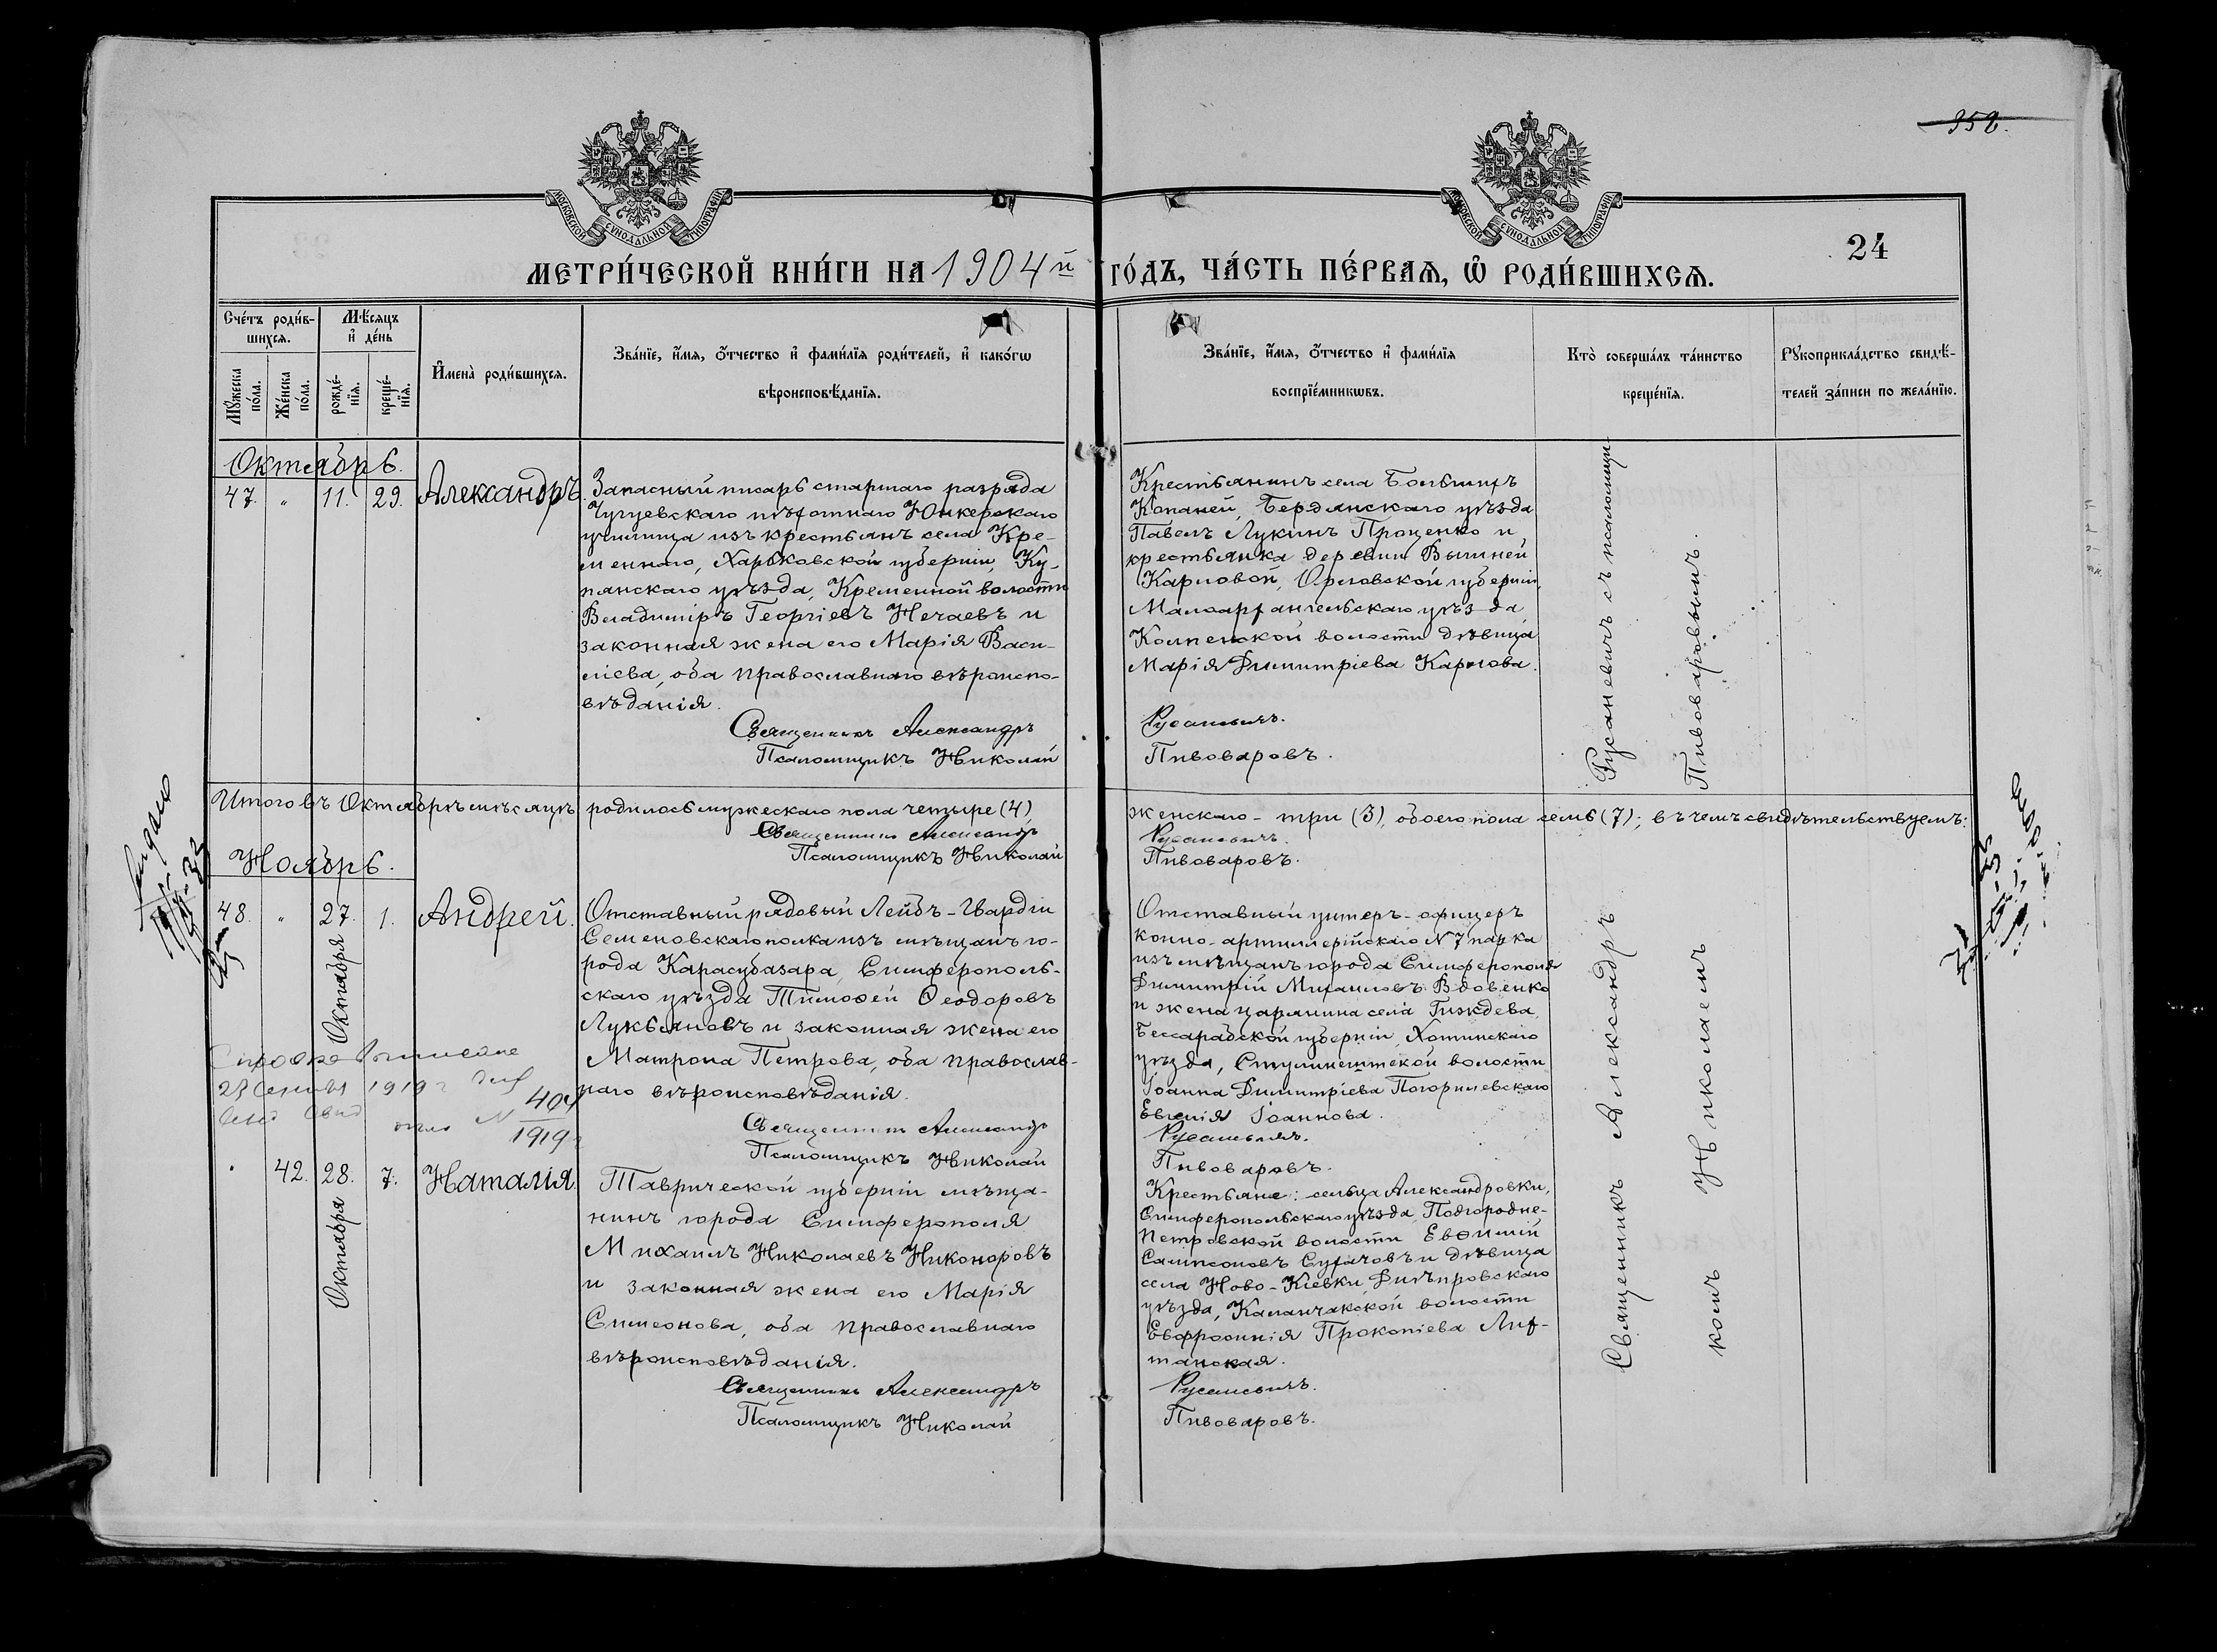 352.
24
МОСКОВСКОЙ СѴНОДАЛЬНОЙ ТИПОГРАФІИ
МОСКОВСКОЙ СѴНОДАЛЬНОЙ ТИПОГРАФІИ
МЕТРИ́ЧЕСКОЙ КНИ́ГИ НА 1904й ГО́ДЪ, ЧА́СТЬ ПЕ́РВАЯ, Ѽ РОДИ́ВШИХСЯ.
Сче́тъ роди́в-
шихся.
Мѣ́сяцъ
и҆ де́нь
Мꙋ́жеска
по́ла.
Же́нска
по́ла.
рожде́-
нїя.
креще́-
нїя.
И҆мена̀ роди́вшихся.
Зва́нїе, и҆́мя, ѻ҆́тчество и҆ фами́лїя роди́телей, и҆ како́гѡ
вѣроисповѣ́данїя.
Зва́нїе, и҆́мя, ѻ҆́тчество и҆ фами́лїя
воспрїе́мникѡвъ.
Кто̀ соверша́лъ та́инство
креще́нїя.
Рꙋкоприкла́дство свидѣ́-
телей за́писи по жела́нїю.
Октябрь.
47. " 11. 29. Александръ.
Запасный писарь старшаго разряда
Чугуевскаго пѣхотнаго Юнкерскаго
училища изъ крестьянъ села Кре-
меннаго, Харьковской губерніи, Ку-
пянскаго уѣзда, Кременной волости
Владиміръ Георгіевъ Нечаевъ и
законная жена его Марія Васи-
ліева, оба православнаго вѣроиспо-
вѣданія.
Священникъ Александръ
Псаломщикъ Николай
Крестьянинъ села Большихъ
Копаней, Бердянскаго уѣзда
Павелъ Лукинъ Проценко и
крестьянка деревни Вышней
Карловой, Орловской губерніи,
Малоархангельскаго уѣзда
Колпенской волости дѣвица
Марія Димитріева Карлова.
Русаневичъ.
Пивоваровъ.
Русаневичъ съ псаломщи-
Пивоваровымъ.
Итого въ Октябрѣ мѣсяцѣ родилось мужескаго пола четыре (4), женскаго - три (3), обоего пола семь (7); въ чемъ свидѣтельствуемъ:
Священникъ Александръ
Псаломщикъ Николай
Русаневичъ.
Пивоваровъ.
Ноябрь.
48. " 27. Октября 1. Андрей.
Отставный рядовый Лейбъ-Гвардіи
Семеновскаго полка изъ мѣщанъ го-
рода Карасубазара, Симферополь-
скаго уѣзда Тимоѳей Ѳеодоровъ
Лукьяновъ и законная жена его
Матрона Петрова, оба православ-
наго вѣроисповѣданія.
Священникъ Александръ
Псаломщикъ Николай
Отставный унтеръ-офицеръ
конно-артиллерійскаго №7 парка
изъ мѣщанъ города Симферополя
Димитрій Михаиловъ Вдовенко
и жена царанина села Гиждева,
Бессарабской губерніи, Хотинскаго
уѣзда, Ступинетской волости
Іоанна Димитріева Погорилевскаго
Евгенія Іоаннова.
Русаневичъ.
Пивоваровъ.
28 1919 г
№ 404
1919 г
42. 28. Октября 7. Наталія.
Таврической губерніи мѣща-
нинъ города Симферополя
Михаилъ Николаевъ Никоноровъ
и законная жена его Марія
Симеонова, оба православнаго
вѣроисповѣданія.
Священникъ Александръ
Псаломщикъ Николай
Крестьяне: сельца Александровки,
Симферопольскаго уѣзда, Подгородне-
Петровской волости Евѳимій
Сампсоновъ Сухачовъ и дѣвица
села Ново-Кіевки, Днѣпровскаго
уѣзда, Каланчакской волости
Евфросинія Прокопіева Лих-
танская.
Русаневичъ.
Пивоваровъ.
Священникъ Александръ
комъ Николаемъ